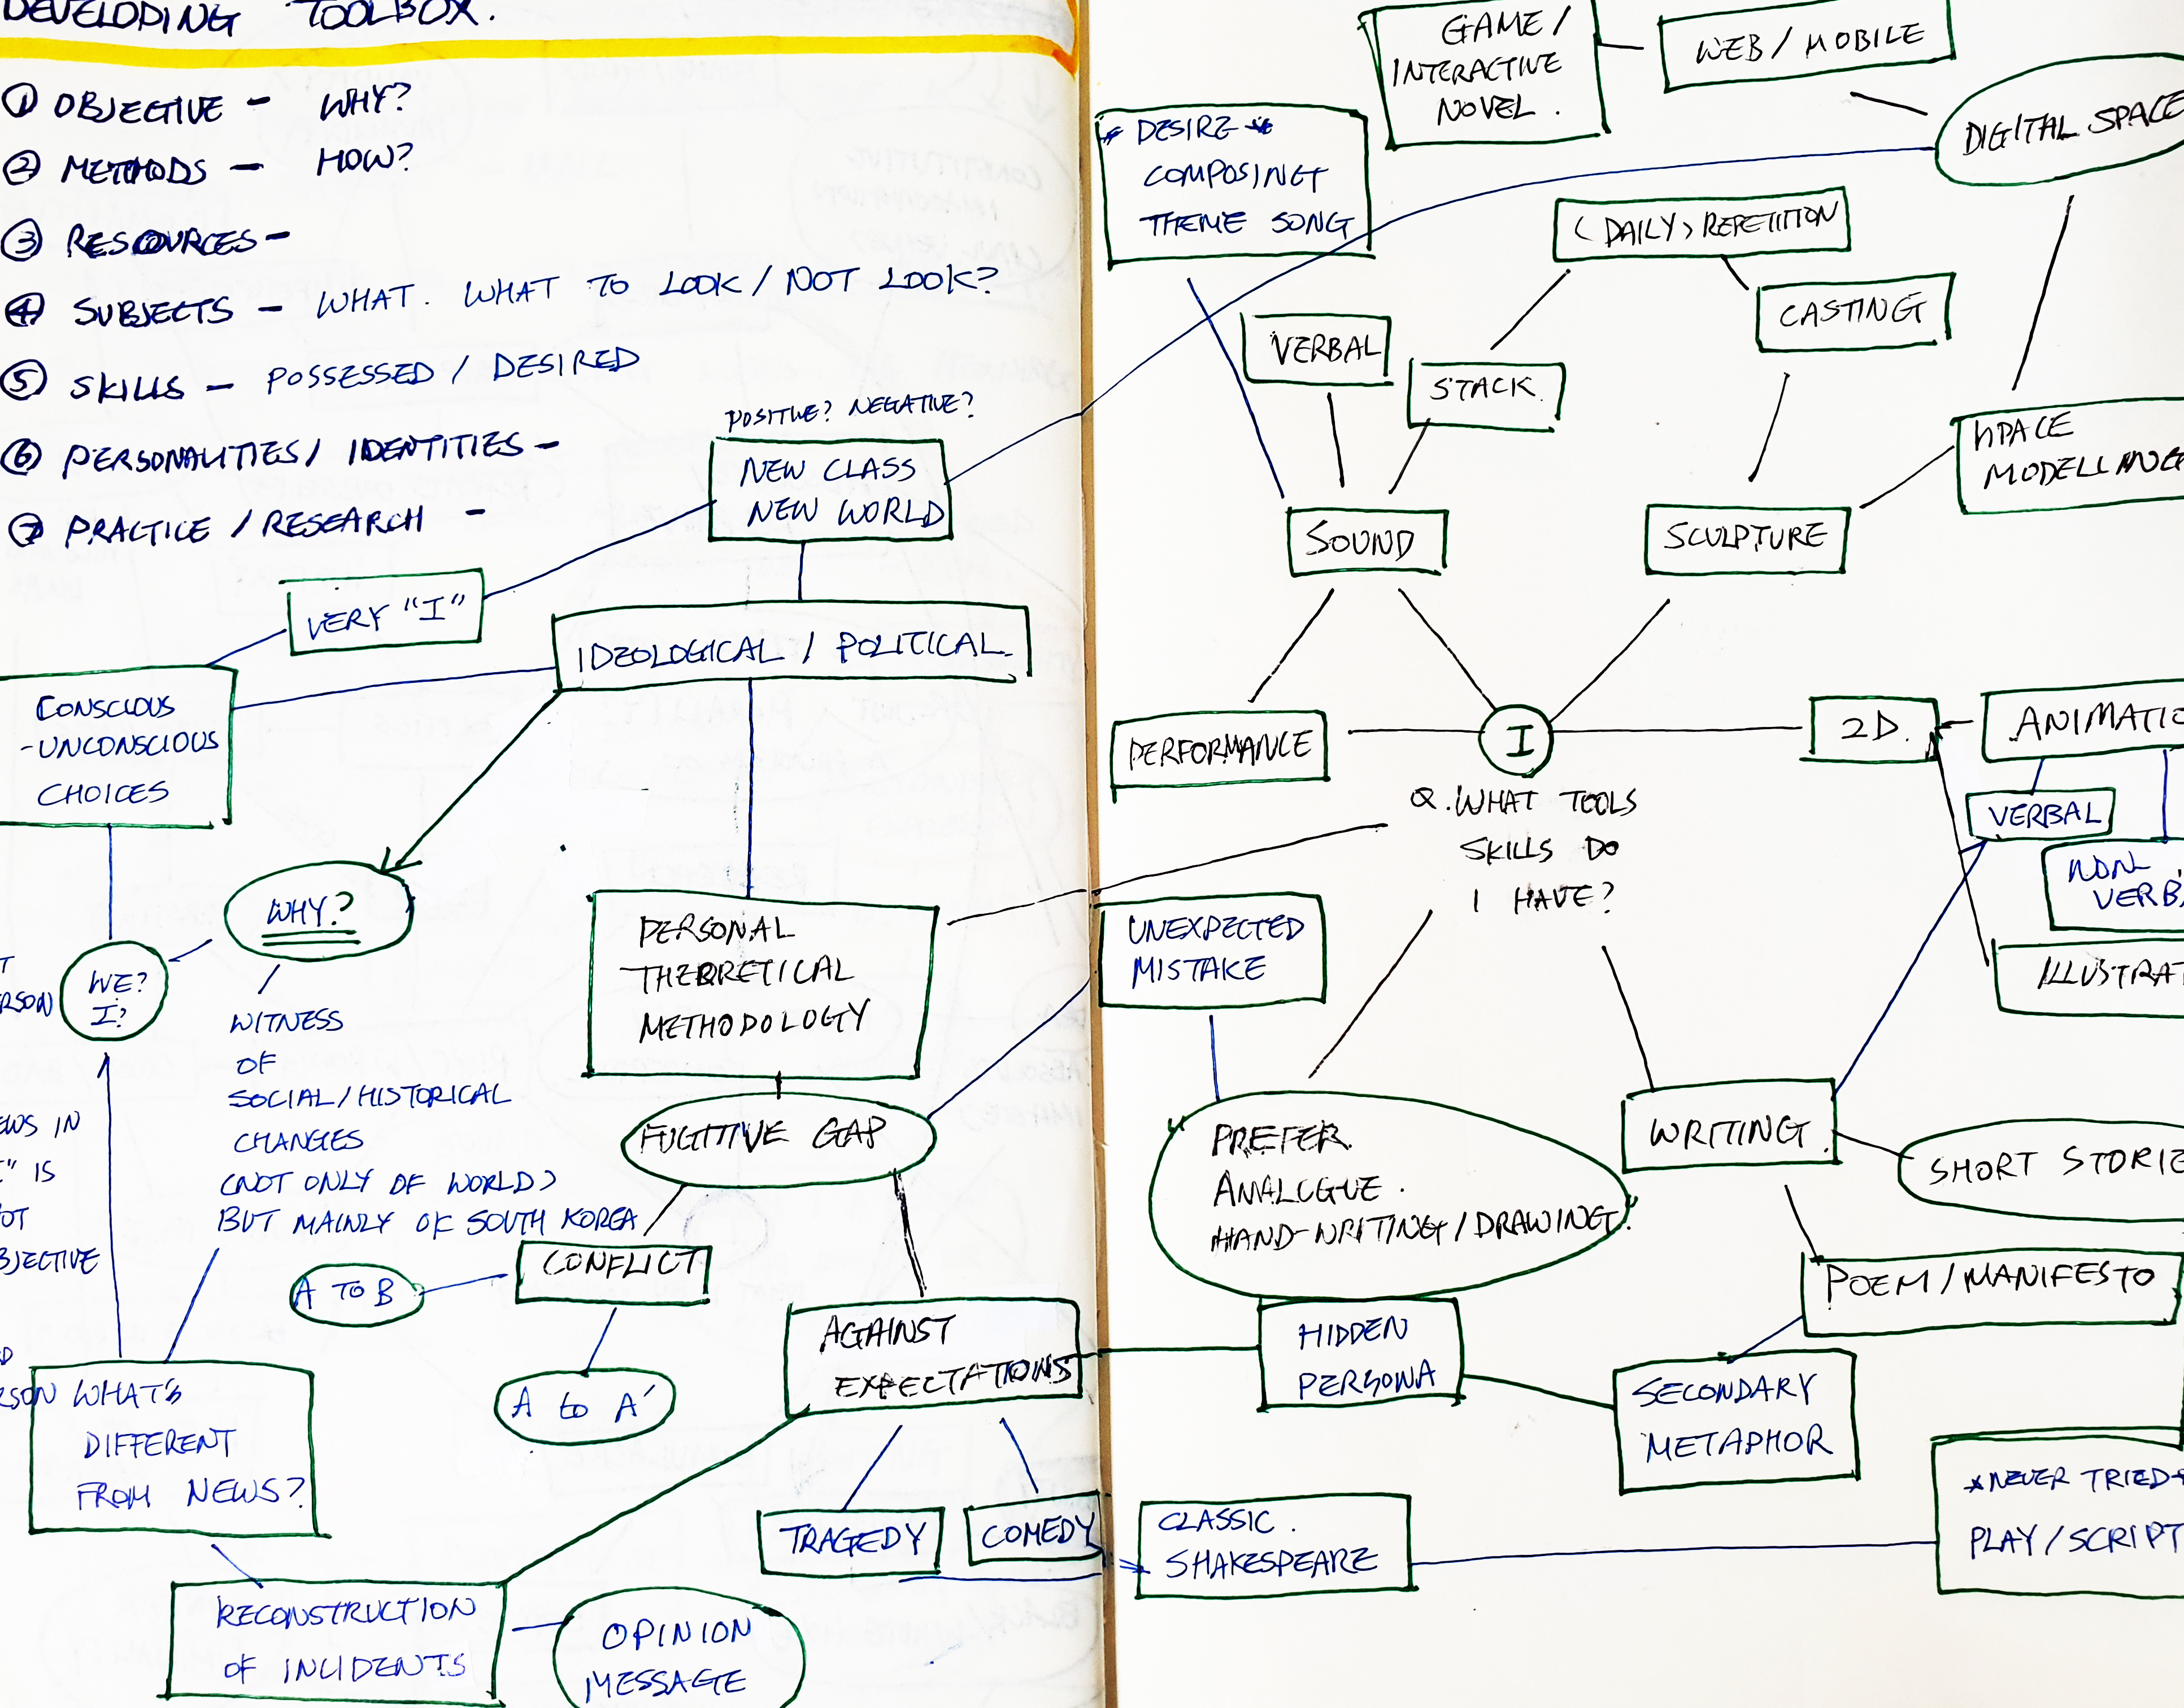 DEVELOPING TOOLBOX.
① OBJECTIVE - WHY?
② METHODS - HOW?
③ RESOURCES -
④ SUBJECTS - WHAT. WHAT TO LOOK / NOT LOOK?
⑤ SKILLS - POSSESSED / DESIRED
⑥ PERSONALITIES / IDENTITIES -
⑦ PRACTICE / RESEARCH -
POSITIVE? NEGATIVE?
NEW CLASS
NEW WORLD
VERY "I"
IDEOLOGICAL / POLITICAL
CONSCIOUS
-UNCONSCIOUS
CHOICES
WHY?
WE?
I?
WITNESS
OF
SOCIAL/HISTORICAL
CHANGES
(NOT ONLY OF WORLD)
BUT MAINLY OF SOUTH KOREA
IN
IS
PERSONAL
THEORETICAL
METHODOLOGY
FUGITIVE GAP
CONFLICT
A TO B
A to A'
AGAINST
EXPECTATIONS
TRAGEDY
COMEDY
WHAT'S
DIFFERENT
FROM NEWS?
RECONSTRUCTION
OF INCIDENTS
OPINION
MESSAGE
GAME /
INTERACTIVE
NOVEL.
WEB / MOBILE
DIGITAL SPACE
* DESIRE *
COMPOSING
THEME SONG
(DAILY) REPETITION
CASTING
VERBAL
STACK.
SPACE
MODELLING
SOUND
SCULPTURE
PERFORMANCE
I
2D.
ANIMATIO
VERBAL
NON
VERB
ILLUSTRAT
Q. WHAT TOOLS
SKILLS DO
I HAVE?
UNEXPECTED
MISTAKE
PREFER.
ANALOGUE.
HAND-WRITING/DRAWING.
WRITING.
SHORT STORIE
POEM/MANIFESTO
HIDDEN
PERSONA
SECONDARY
METAPHOR
CLASSIC.
SHAKESPEARE
*NEVER TRIED*
PLAY/SCRIPT